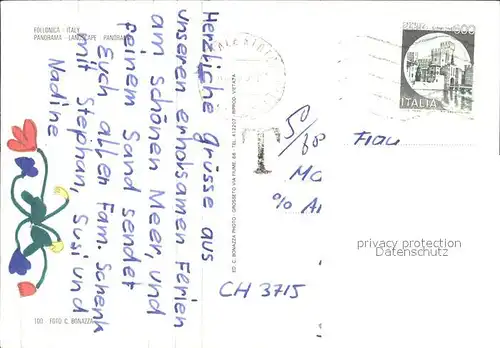 FOLLONICA - ITALY
PANORAMA - LANDSCAPE - PANORAMA
Herzliche grüsse aus
unseren erholsamen Ferien
am schönen Meer, und
feinem Sand sendet
Euch allen Fam. Schenk
mit Stephan, Susi und
Nadine
100 - FOTO C. BONAZZA
ED. C. BONAZZA PHOTO - GROSSETO VIA FIUME, 68 - TEL. 412207 - IMPROD. VIETATA
600
ITALIA
T
50
Frau
CH 3715
privacy protection
Datenschutz